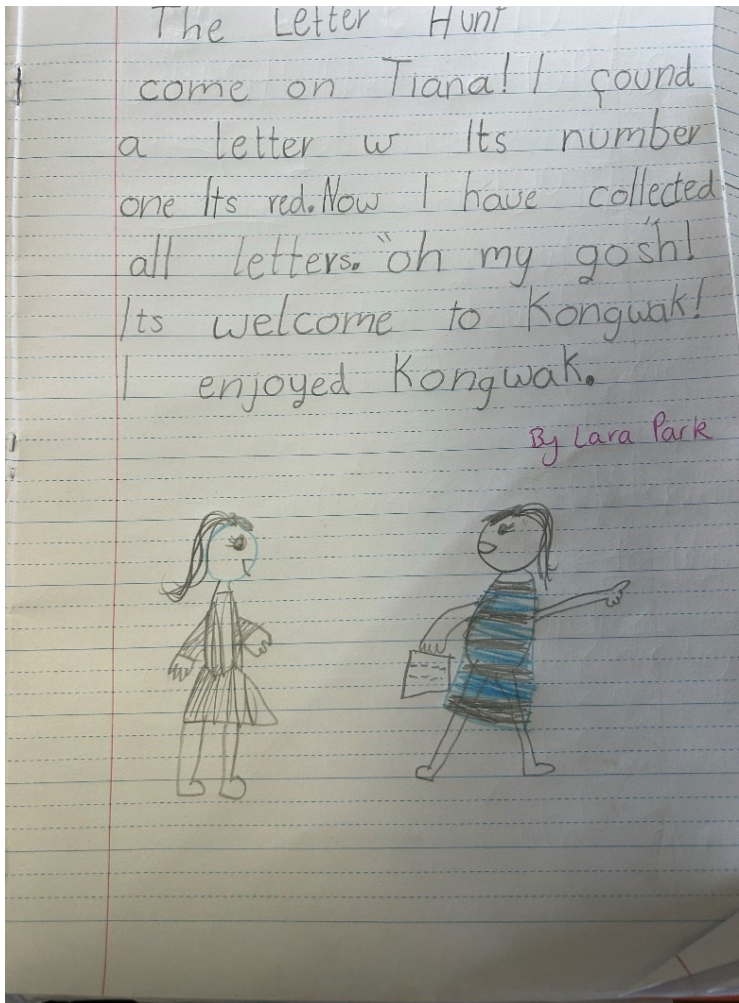 The Letter Hunt
come on Tiana! I found
a letter w Its number
one Its red. Now I have collected
all letters. "oh my gosh!"
Its welcome to Kongwak!
I enjoyed Kongwak.
By Lara Park